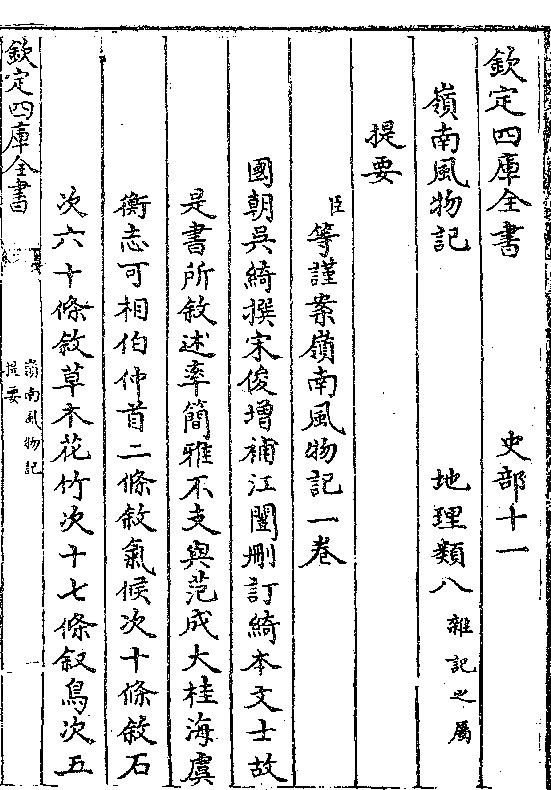 欽定四庫全書　史部十一
嶺南風物記　地理類八雜記之屬
提要
臣等謹案嶺南風物記一卷
國朝吳綺撰宋俊增補江闓刪訂綺本文士故
是書所敘述率簡雅不支與范成大桂海虞
衡志可相伯仲首二條敘氣候次十條敘石
次六十條敘草木花竹次十七條叙鳥次五
欽定四庫全書
嶺南風物記
提要